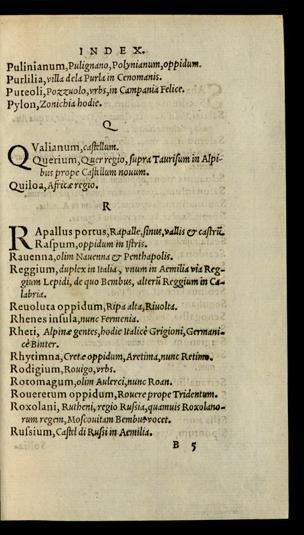 INDEX.
Pulinianum, Pulignano, Polynianum, oppidum.
Purlilia, villa dela Purla in Cenomanis.
Puteoli, Pozzuolo, vrbs, in Campania Felice.
Pylon, Zonichia hodie.
Q
QValianum, castellum.
Querium, Quer regio, supra Taurisum in Alpi-
bus prope Castillum nouum.
Quiloa, Africæ regio.
R
RApallus portus, Rapalle, sinus, vallis & castrū.
Raspum, oppidum in Istris.
Rauenna, olim Nauenna & Penthapolis.
Reggium, duplex in Italia, vnum in Aemilia via Reg-
gium Lepidi, de quo Bembus, alterū Reggium in Ca-
labria.
Reuoluta oppidum, Ripa alta, Riuolta.
Rhenes insula, nunc Fermenia.
Rheti, Alpinæ gentes, hodie Italicè Grigioni, Germani-
cè Binter.
Rhytimna, Cretæ oppidum, Aretima, nunc Retimo.
Rodigium, Rouigo, vrbs.
Rotomagum, olim Aulerci, nunc Roan.
Roueretum oppidum, Rouere prope Tridentum.
Roxolani, Rutheni, regio Russia, quamuis Roxolano-
rum regem, Moscouitam Bembus vocet.
Russium, Castel di Russi in Aemilia.
B 5